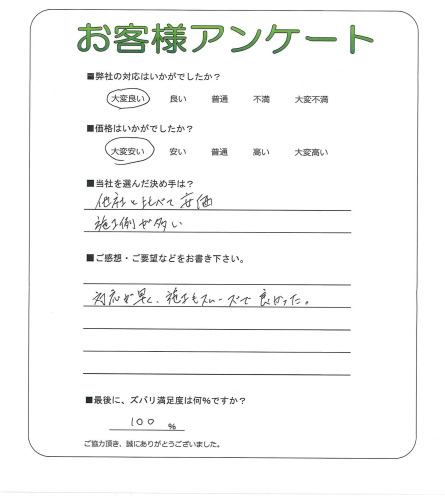 お客様アンケート
■弊社の対応はいかがでしたか?
大変良い 良い 普通 不満 大変不満
■価格はいかがでしたか?
大変安い 安い 普通 高い 大変高い
■当社を選んだ決め手は?
他社と比べて安価
施工例が多い
■ご感想・ご要望などをお書き下さい。
対応が早く、施工もスムーズで良かった。
■最後に、ズバリ満足度は何%ですか?
100 %
ご協力頂き、誠にありがとうございました。